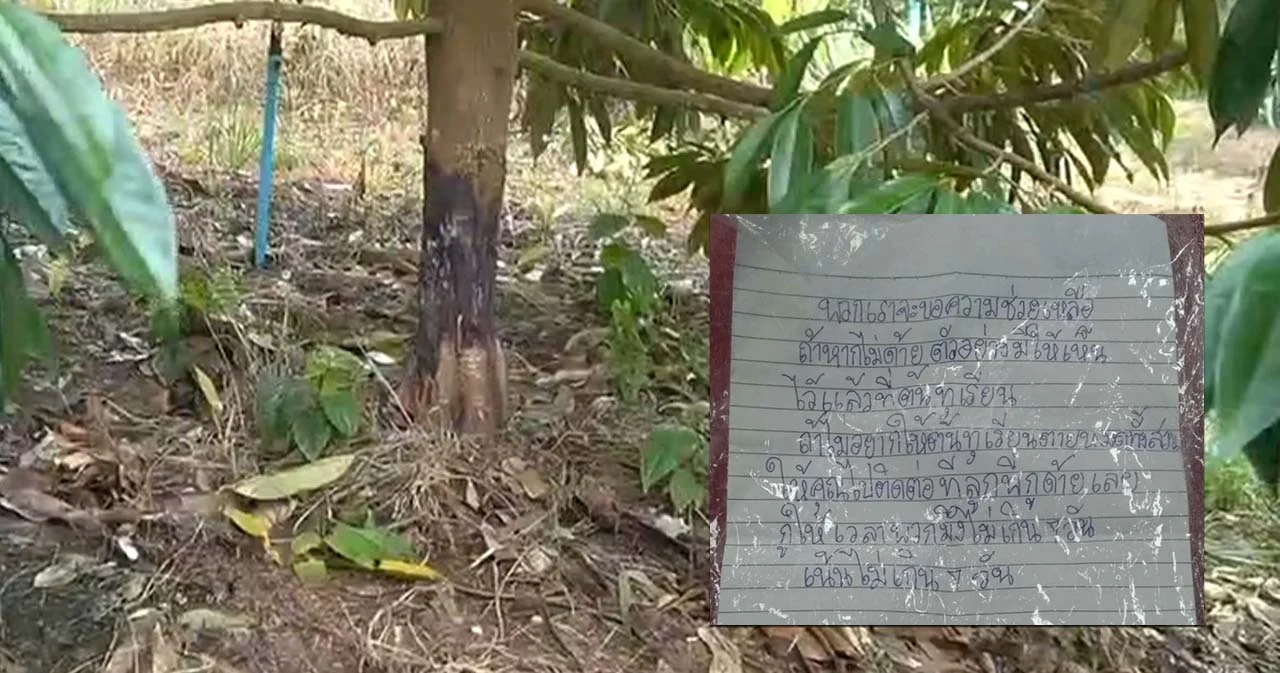 พวกเราจะขอความช่วยเหลือ
ถ้าหากไม่ด้าย ตัวอย่างมีให้เห็น
ไว้แล้วที่ต้นทูเรียน
ถ้าไม่อยากให้ต้นทุเรียนตาย
ให้คุณไปติดต่อที่ลูกพี่กูด้ายเลย
กูให้เวลาพวกมึงไม่เกิน ๆวัน
เน้นไม่เกิน ๆ วัน